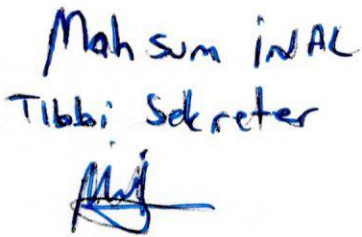 Mahsum İNAL
Tıbbi Sekreter